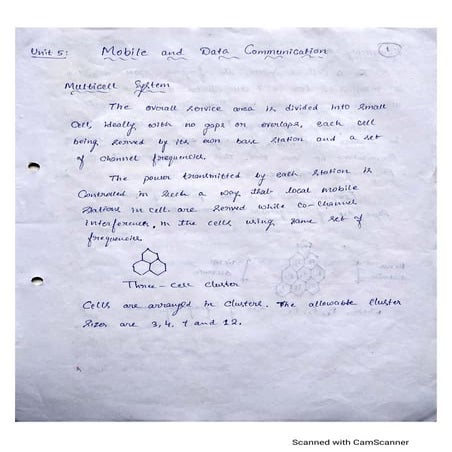 Unit 5: Mobile and Data Communication 1
Multicell System
The overall service area is divided into small
Cell, ideally with no gaps or overlaps, each cell
being served by its own base station and a set
of channel frequencies.
The power transmitted by each station is
Controlled in such a way that local mobile
stations in cell are served while co-channel
interference, in the cells using same set of
frequencies.
Three-Cell Cluster
Cells are arranged in clusters. The allowable cluster
sizes are 3, 4, 7 and 12.
Scanned with CamScanner